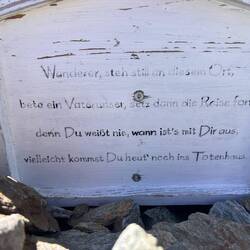 Wanderer, steh still an diesem Ort,
bete ein Vaterunser, setz dann die Reise fort
denn Du weißt nie, wann ist's mit Dir aus,
vielleicht kommst Du heut' noch ins Totenhaus.